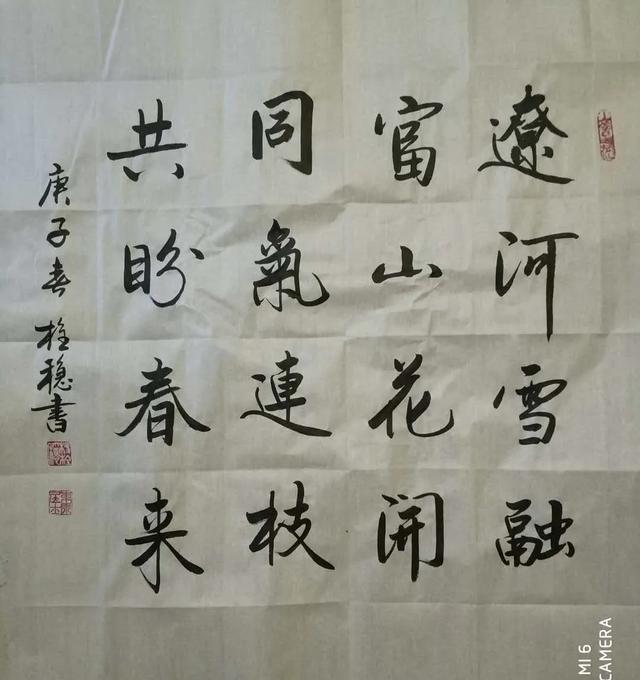 遼河雪融
富山花開
同氣連枝
共盼春来
庚子春桂穩書
MI 6
CAMERA